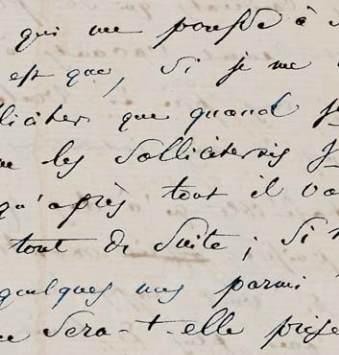 qui me pousse à
est que, si je me
liciter que quand
les solliciterais
qu'après tout il va
tout de suite ; si
quelques uns parmi
sera-t-elle